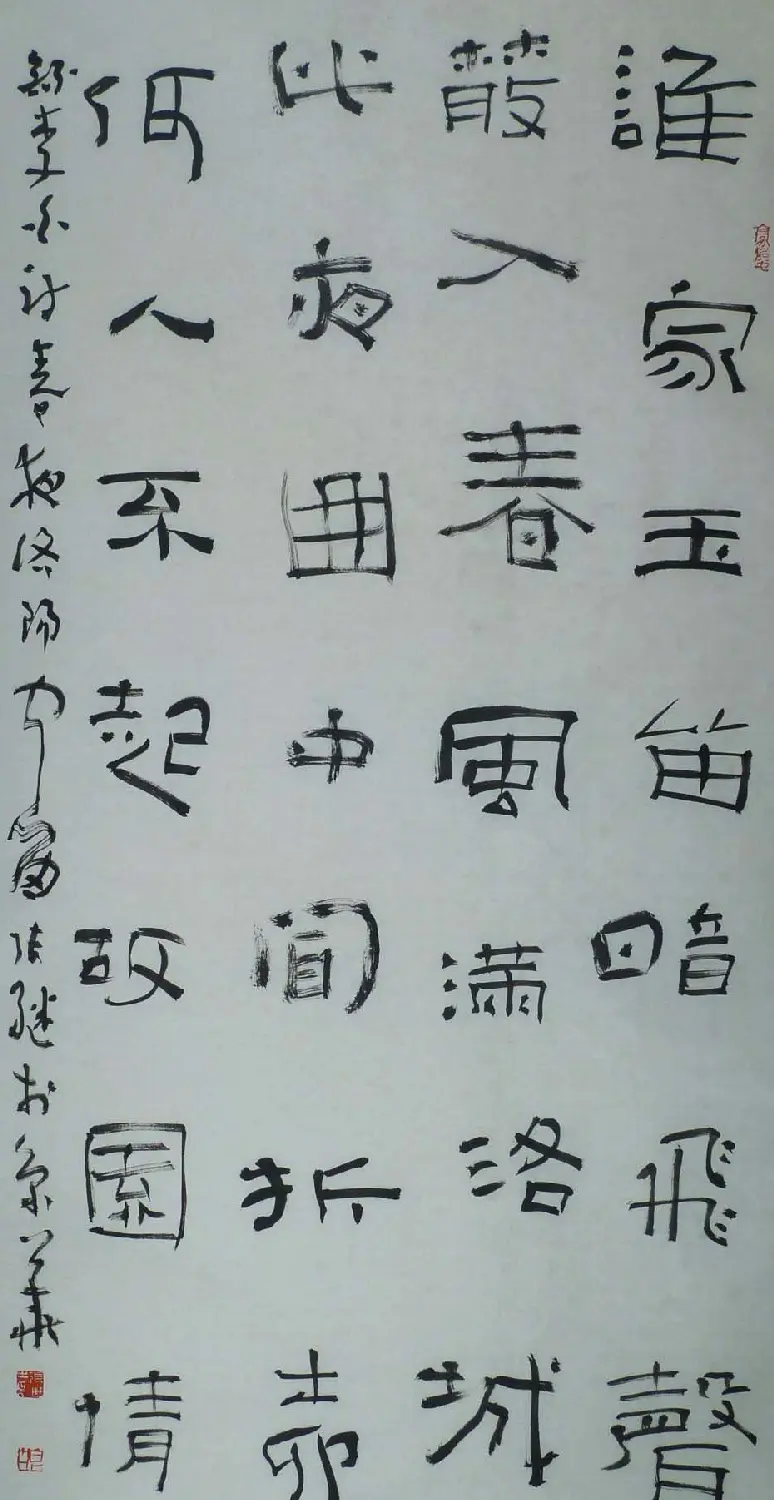 誰家玉笛暗飛聲
散入春風滿洛城
此夜曲中聞折柳
何人不起故園情
錄李白詩春夜洛陽聞笛 張繼於京華